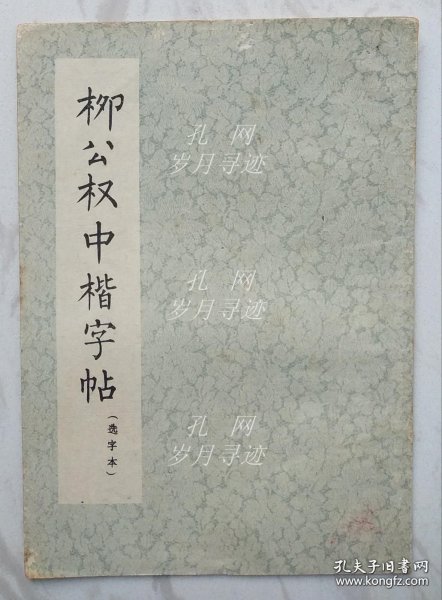 柳公权中楷字帖
（选字本）
孔网
岁月寻迹
孔网
岁月寻迹
孔网
岁月寻迹
孔夫子旧书网
www.kongfz.com